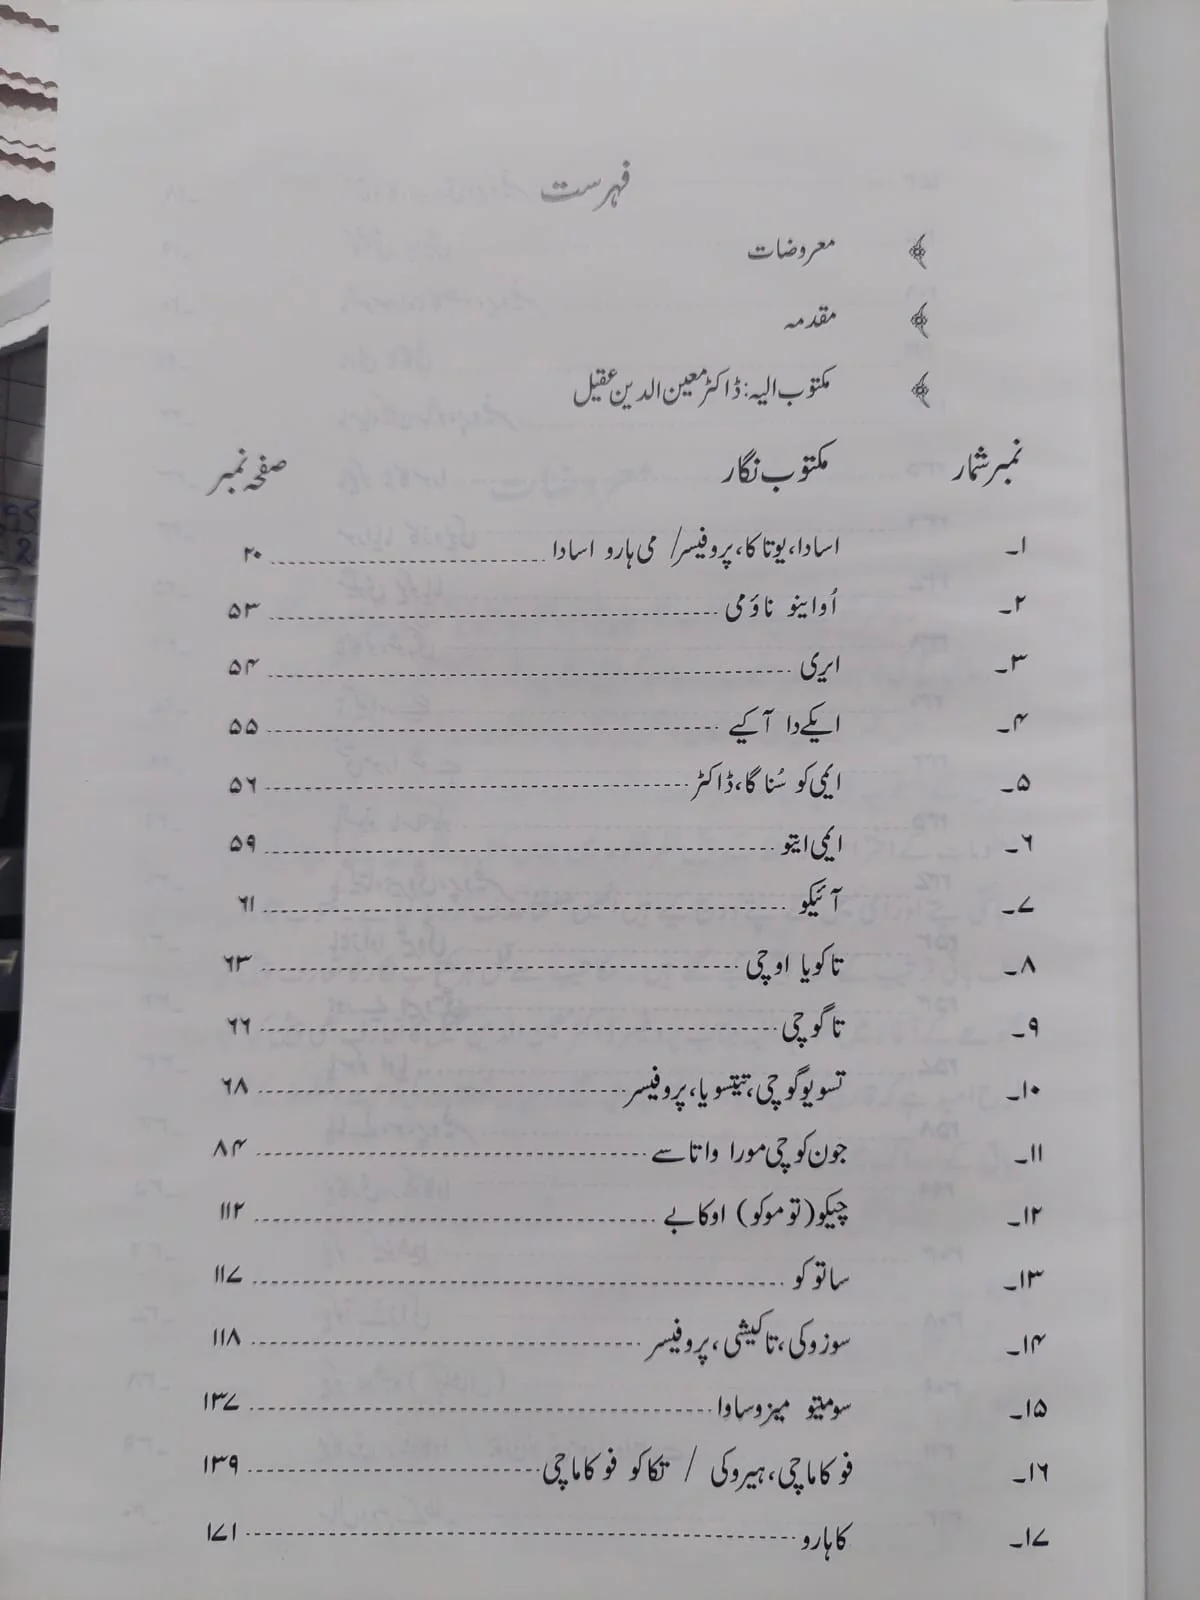 فہرست
معروضات
مقدمہ
مکتوب الیہ: ڈاکٹر معین الدین عقیل
نمبر شمار مکتوب نگار صفحہ نمبر
۱۔ اسادا، یوتاکا، پروفیسر/ می ہارو اسادا ۲۰
۲۔ اُواینو ناؤمی ۵۳
۳۔ ایری ۵۴
۴۔ ایکے دا آکیے ۵۵
۵۔ ایمی کو سُناگا، ڈاکٹر ۵۶
۶۔ ایمی ایتو ۵۹
۷۔ آئیکو ۶۱
۸۔ تاکویا اوچی ۶۳
۹۔ تاگوچی ۶۶
۱۰۔ تسویوگوچی، تیتسویا، پروفیسر ۶۸
۱۱۔ جون کوچی مورا واتاسے ۸۴
۱۲۔ چیکو (توموکو) اوکابے ۱۱۲
۱۳۔ ساتوکو ۱۱۷
۱۴۔ سوزوکی، تاکیشی، پروفیسر ۱۱۸
۱۵۔ سومیتو میزوساوا ۱۳۷
۱۶۔ فوکاماچی، ہیروکی / تکاکو فوکاماچی ۱۳۹
۱۷۔ کاہارو ۱۷۱